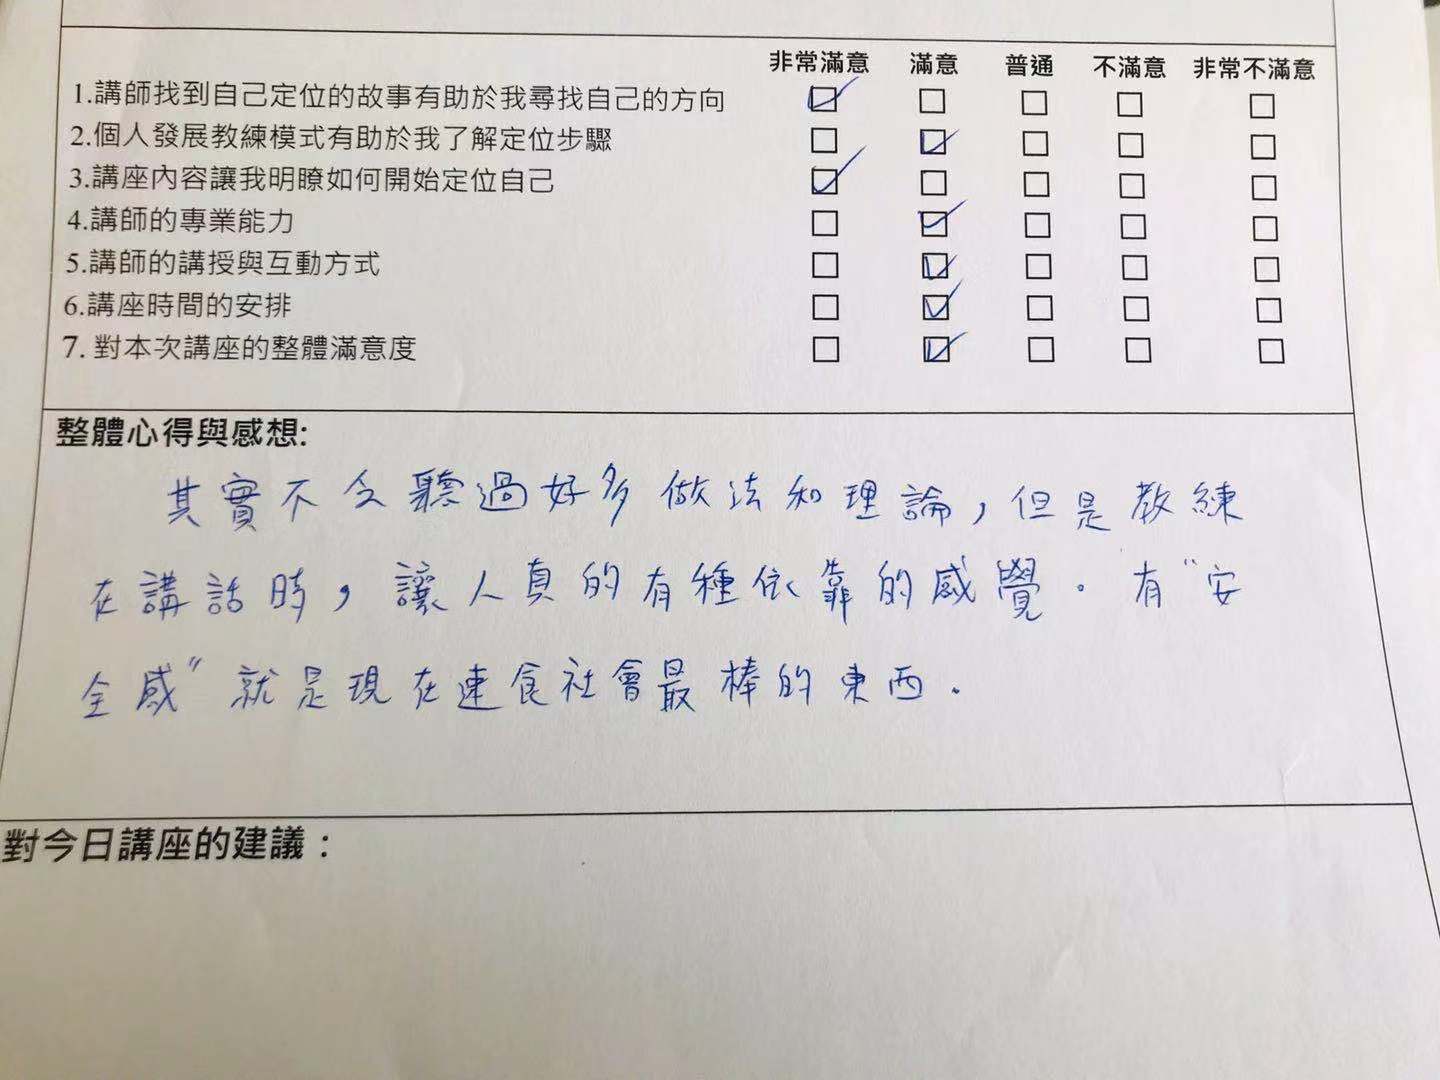 非常滿意 滿意 普通 不滿意 非常不滿意
1.講師找到自己定位的故事有助於我尋找自己的方向 ☑ ☐ ☐ ☐ ☐
2.個人發展教練模式有助於我了解定位步驟 ☐ ☑ ☐ ☐ ☐
3.講座內容讓我明瞭如何開始定位自己 ☑ ☐ ☐ ☐ ☐
4.講師的專業能力 ☐ ☑ ☐ ☐ ☐
5.講師的講授與互動方式 ☐ ☑ ☐ ☐ ☐
6.講座時間的安排 ☐ ☑ ☐ ☐ ☐
7. 對本次講座的整體滿意度 ☐ ☑ ☐ ☐ ☐
整體心得與感想:
其實不 聽過好多做法和理論，但是教練
在講話時，讓人真的有種依靠的感覺．有"安
全感"就是現在速食社會最棒的東西．
對今日講座的建議：